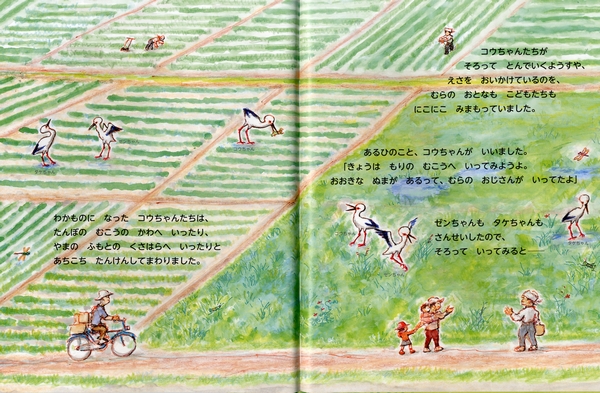 わかものに　なった　コウちゃんたちは、
たんぼの　むこうの　かわへ　いったり、
やまの　ふもとの　くさはらへ　いったりと
あちこち　たんけんしてまわりました。
コウちゃんたちが
そろって　とんでいくようすや、
えさを　おいかけているのを、
むらの　おとなも　こどもたちも
にこにこ　みまもっていました。
あるひのこと、コウちゃんが　いいました。
「きょうは　もりの　むこうへ　いってみようよ。
おおきな　ぬまが　あるって、むらの　おじさんが　いってたよ」
ゼンちゃんも　タケちゃんも
さんせいしたので、
そろって　いってみると――
タケちゃん